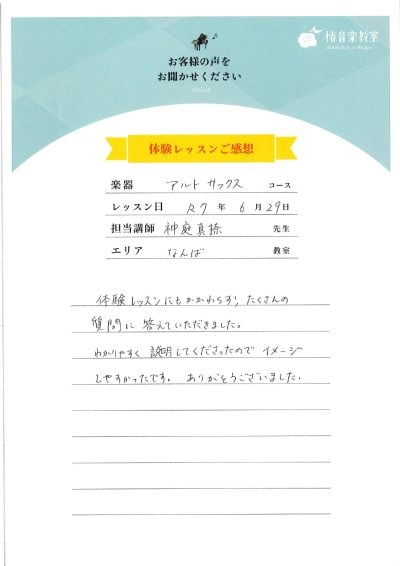 椿音楽教室
お客様の声を
お聞かせください
Voice
体験レッスンご感想
楽器 アルト サックス コース
レッスン日 R7 年 6 月 29 日
担当講師 神庭真捺 先生
エリア なんば 教室
体験レッスンにもかかわらず、たくさんの
質問に答えていただきました。
わかりやすく説明してくださったので イメージ
しやすかったです。ありがとうございました。